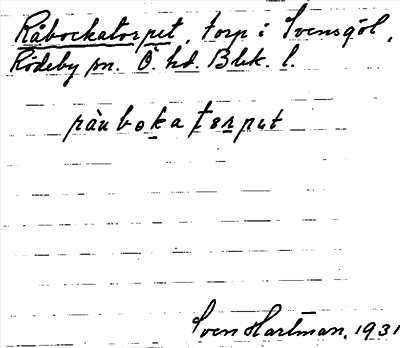 Råbockatorpet, torp i Svensgöl,
Rödeby sn. Ö. hd. Blek. l.
ràuboka tɛrput
Sven Hartman, 1931